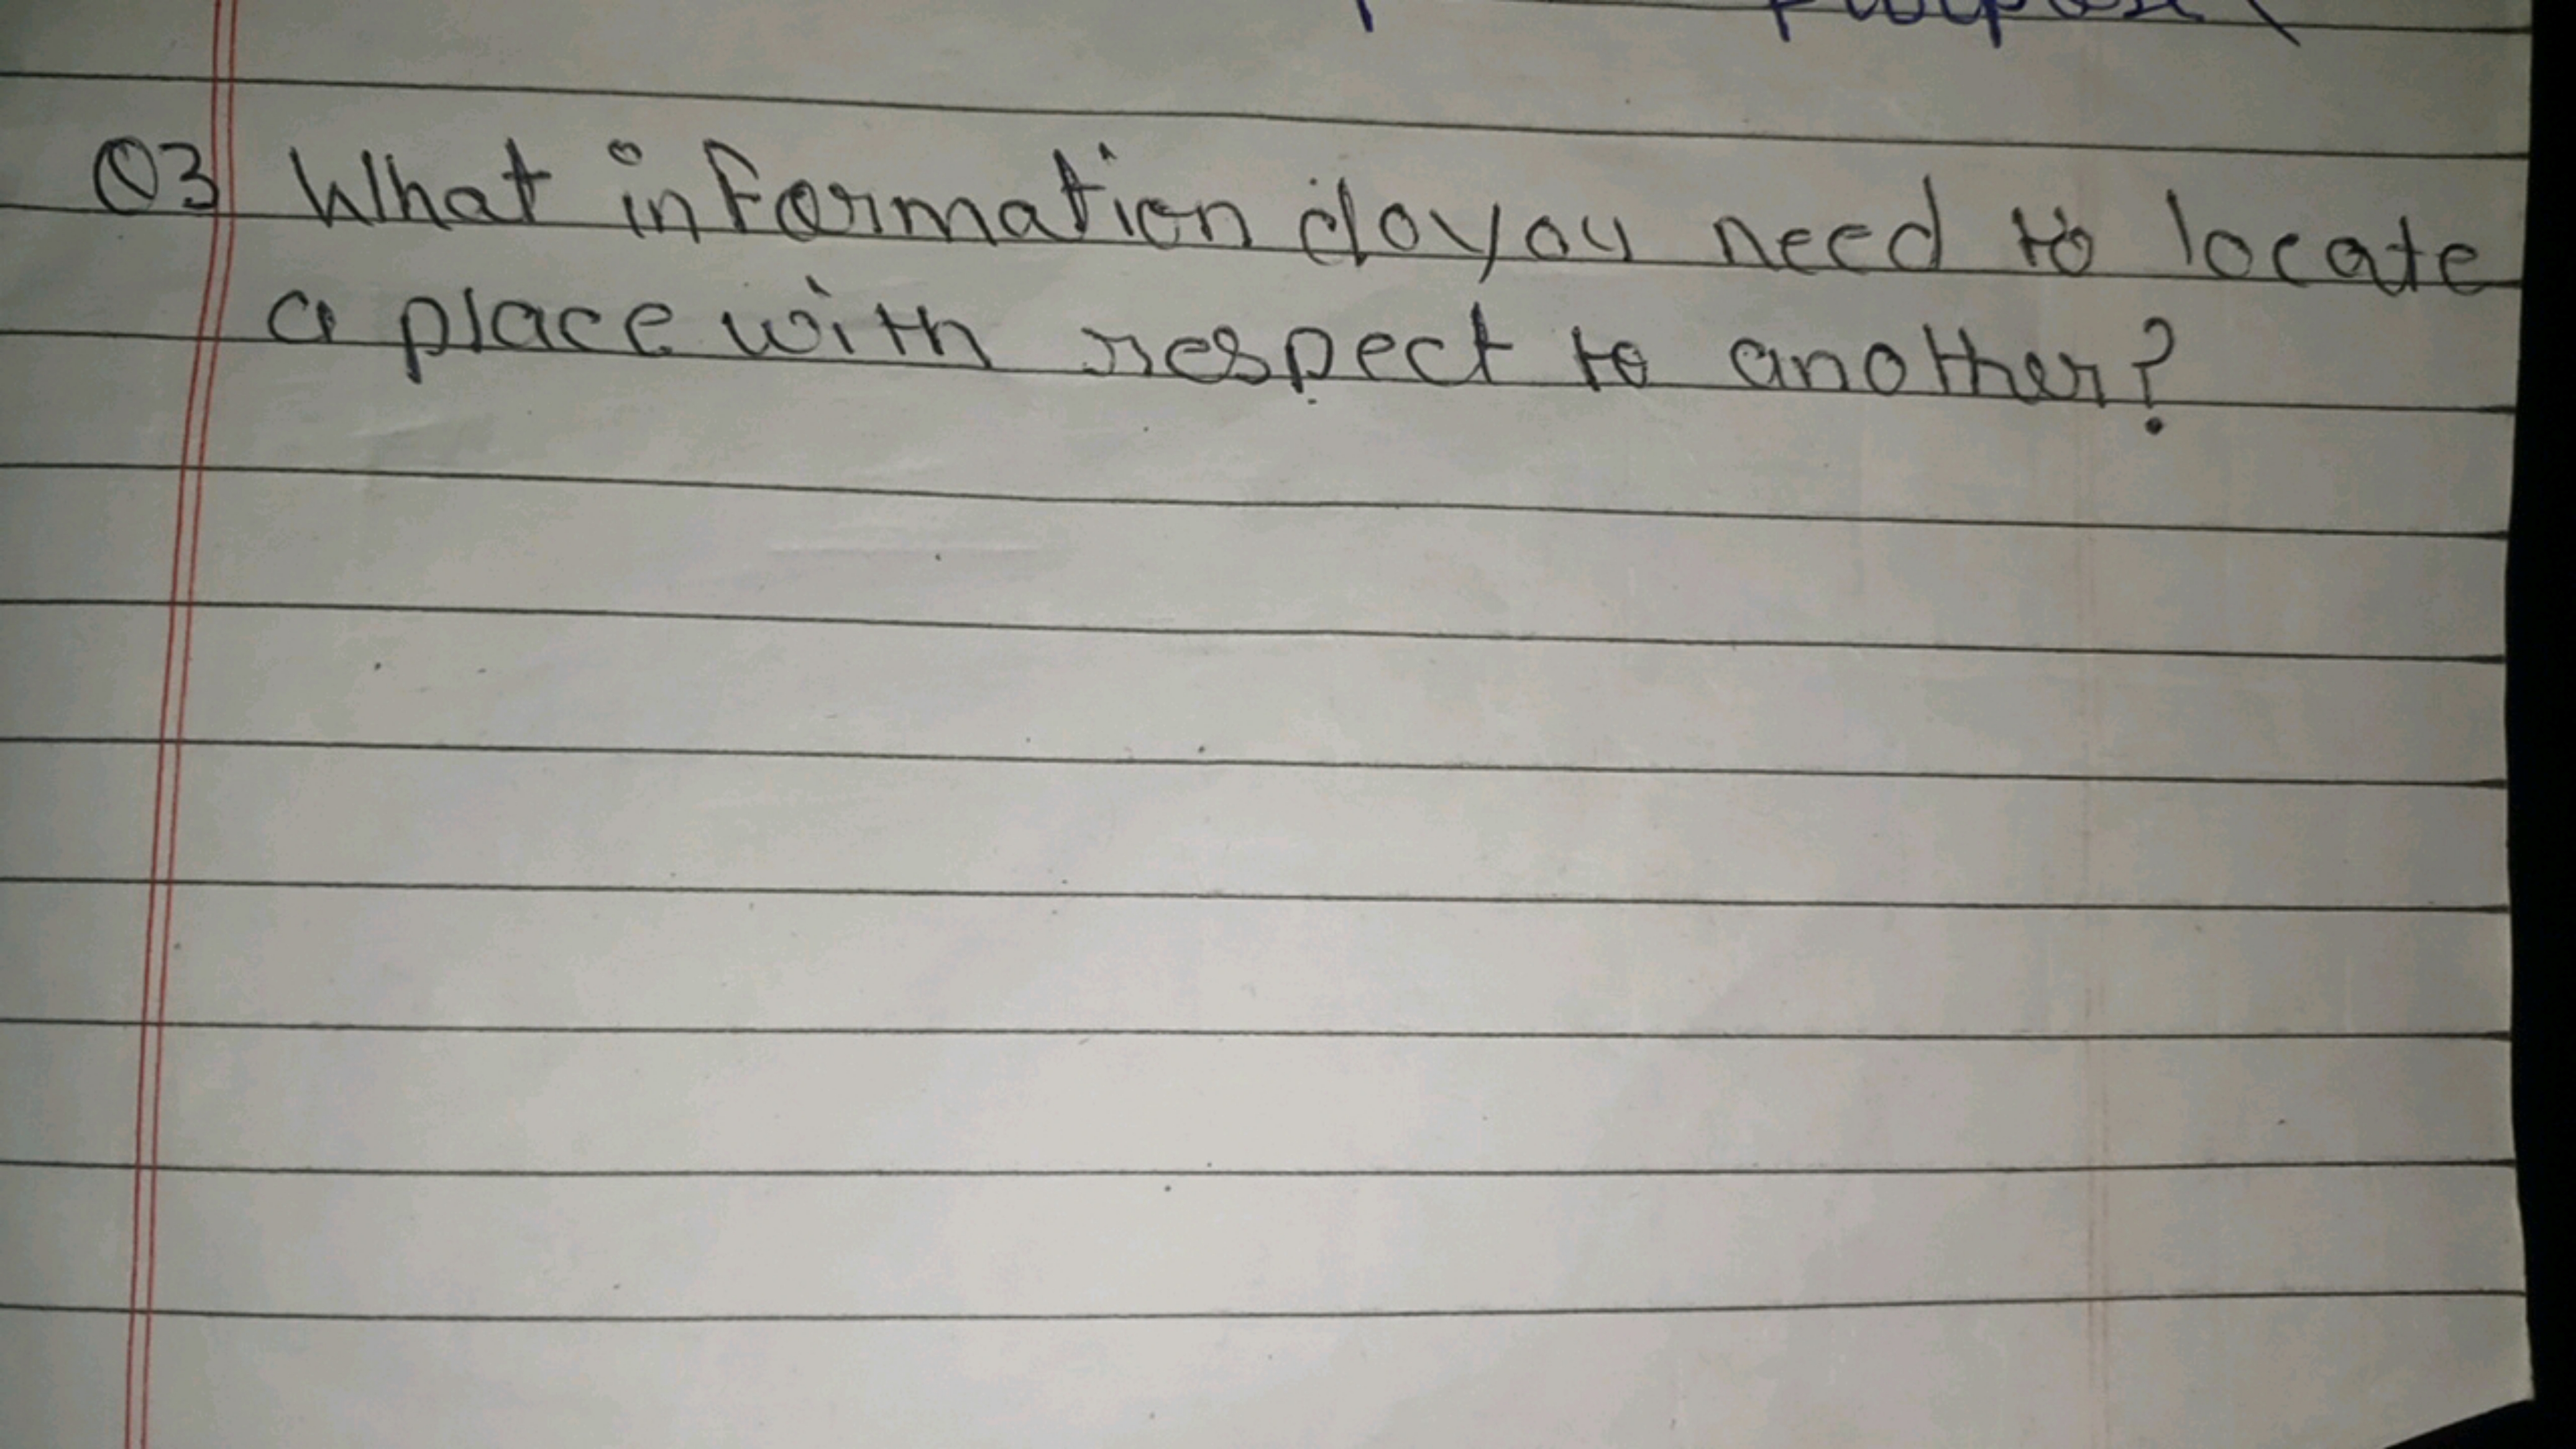 Q3 What information do you need to locate
a place with respect to another?